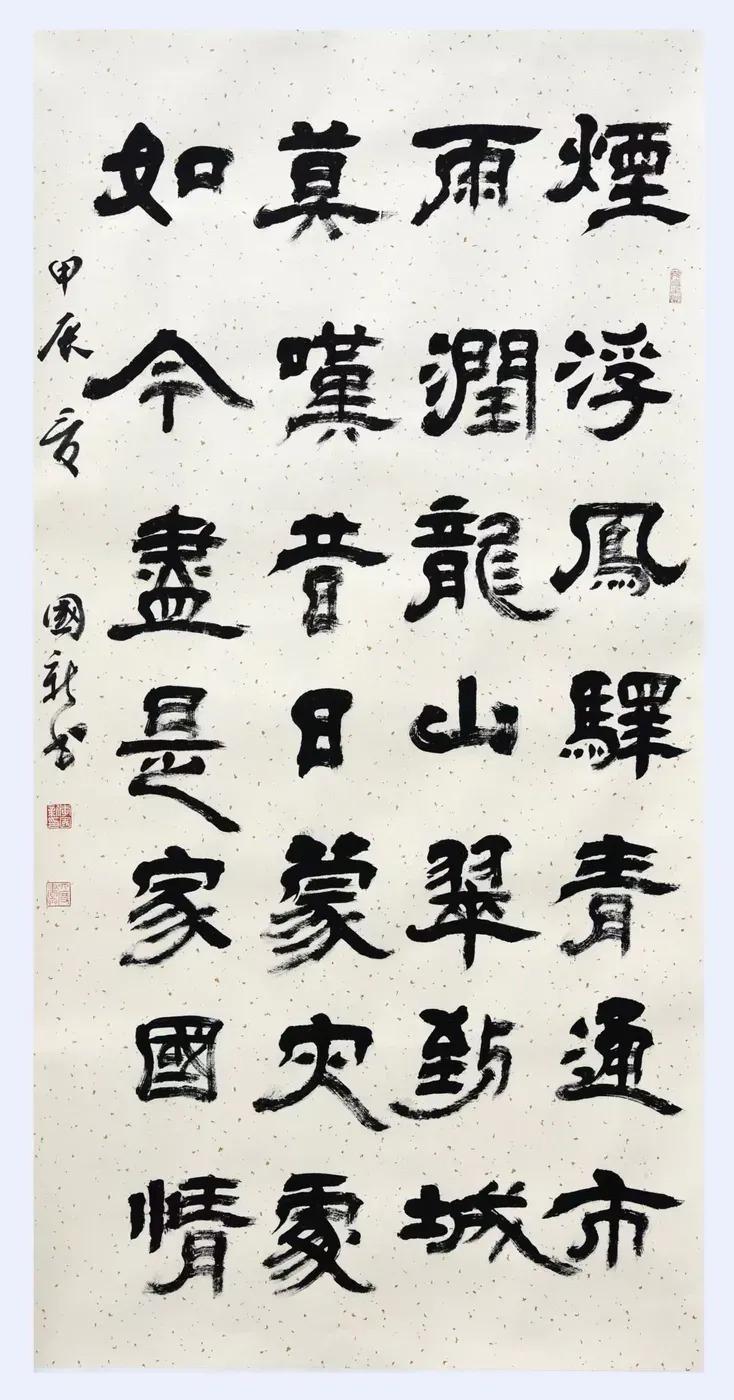 煙浮鳳驛青通市
雨潤龍山翠到城
莫嘆昔日蒙灾處
如今盡是家國情
甲辰夏 國新書